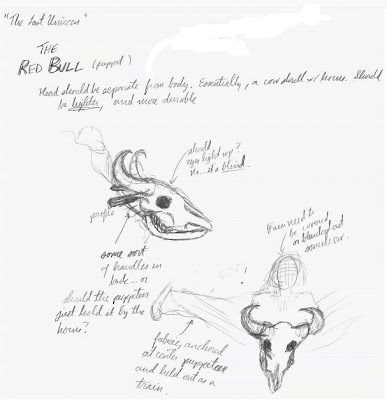 "The Last Unicorn"
THE
RED BULL (puppet)
Head should be separate from body. Essentially, a cow skull w/ horns. Should
be lighter, and more durable
should
eyes light up?
no... it's blind.
people
some sort
of handles in
back... or
should the puppeteer
just hold it by the
horns?
Faces need to
be covered
or blanked out
somehow.
fabric, anchored
at center puppeteer
and held out as a
train.